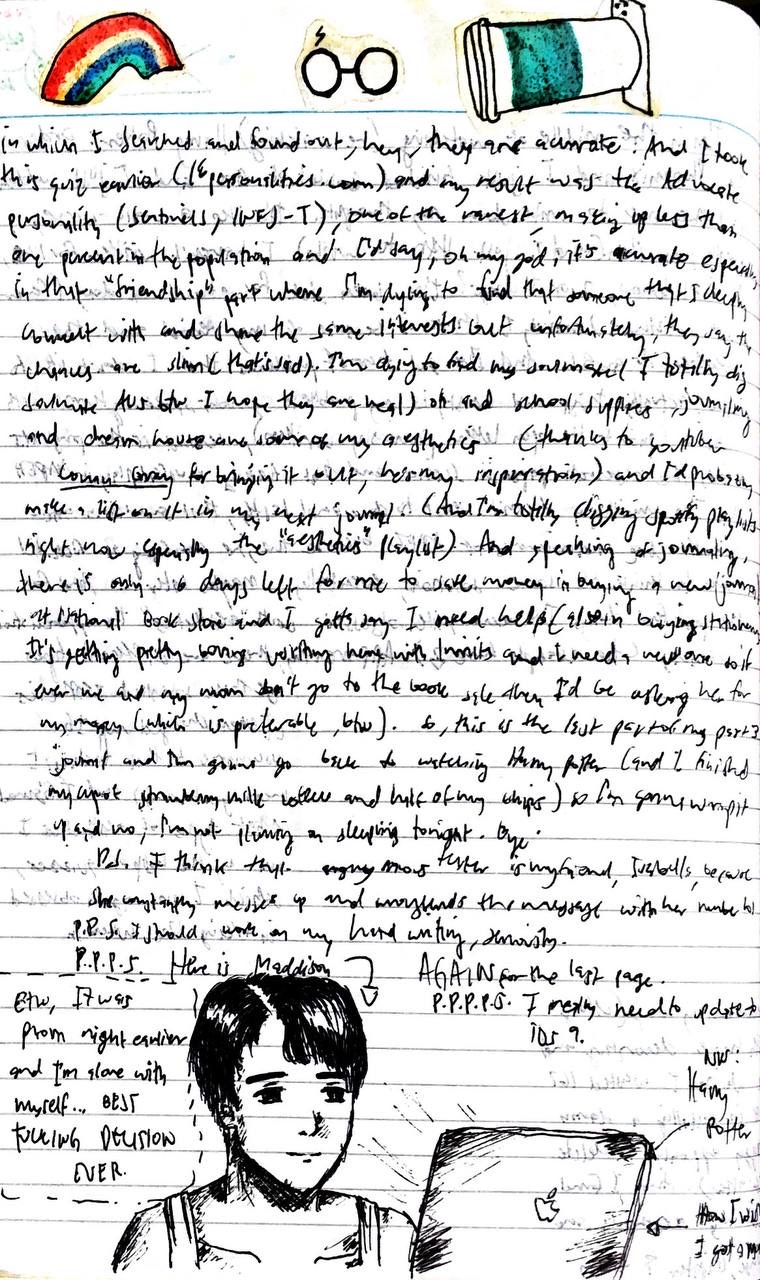 in which I searched and found out, hey, they are accurate. And I took
this quiz earlier (16personalities.com) and my result was the Advocate
personality (Sentinels, INFJ-T), one of the rarest, making up less than
one percent in the population and I'd say, oh my god, it's accurate especially
in that "friendship" part where I'm dying to find that someone that I deeply
connect with and share the same interests but unfortunately, they say the
chances are slim (that's sad). I'm dying to find my soulmate (I totally dig
soulmate AUs btw - I hope they are real) oh and school supplies, journaling
and dream house are some of my aesthetics (thanks to youtuber
for bringing it out, he's my inspiration) and I'd probably
make a list on it in my next journal. (And I'm totally digging spotify playlists
right now especially the "aesthetics" playlist). And speaking of journaling,
there is only 6 days left for me to save money in buying a new journal
at National Book Store and I gotta say I need help (also in buying stationery
It's getting pretty boring writing here with limits and I need a new one so if
ever me and my mom don't go to the book sale then I'd be asking her for
my money (which is preferable, btw). So, this is the last part of my part 3
journal and I'm gonna go back to watching Harry Potter (and I finished
my strawberry milk and half of my chips) so I'm gonna wrap it
up and no, I'm not planning on sleeping tonight. Bye.
P.S. I think that anonymous texter is my friend, because
she constantly messes up and the message with her number lol
P.P.S. I should work on my hand writing, seriously.
P.P.P.S. Here is Maddison
AGAIN for the last page.
P.P.P.P.S. I really need to update to
iOS 9.
Btw, It was
prom night earlier
and I'm alone with
myself... BEST
FUCKING DECISION
EVER.
NW:
Harry
Potter
How I wish
I got a